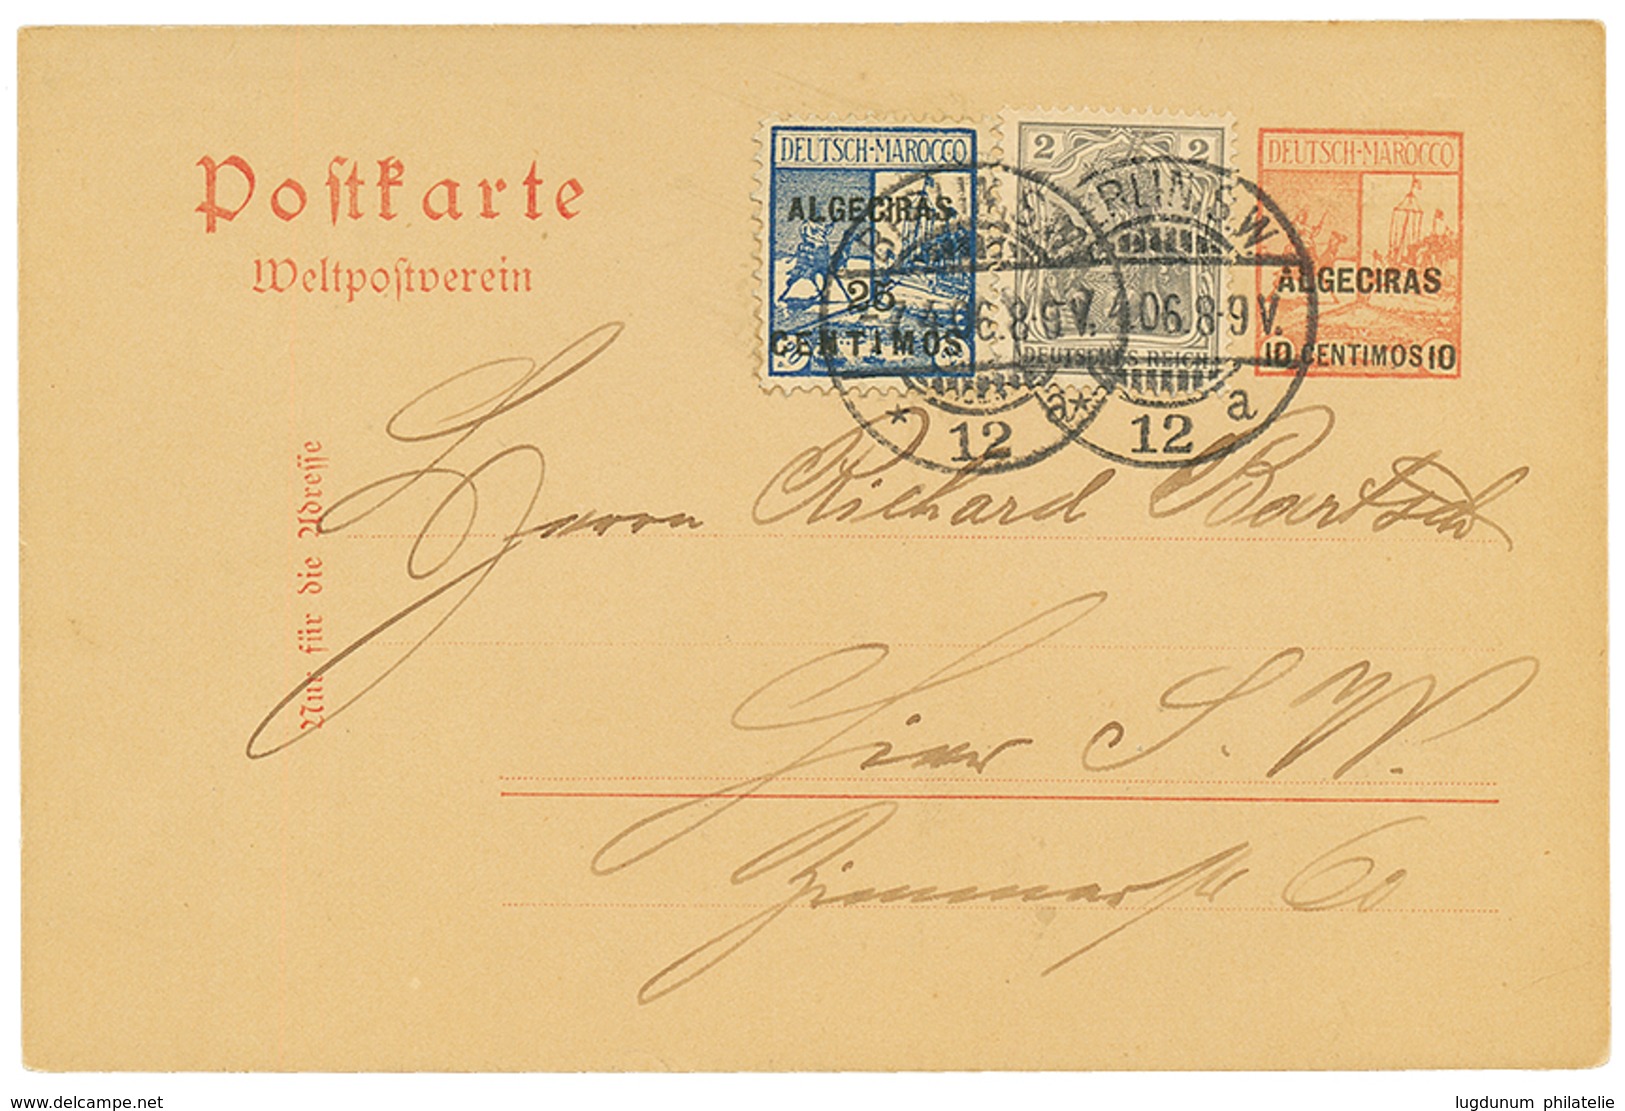 Postkarte
Weltpostverein
Nur für die Adresse
DEUTSCH-MAROCCO
ALGECIRAS
25
CENTIMOS
20
2 2
DEUTSCHES REICH
DEUTSCH-MAROCCO
ALGECIRAS
10 CENTIMOS 10
BERLIN, S.W.
4.06. 8-9 V.
* 12 a
BERLIN, S.W.
4.06. 8-9 V.
* 12 a
Herrn Richard Bartsch
Hier S. W.
Zimmerstr 60
delcampe.net
lugdunum philatelie